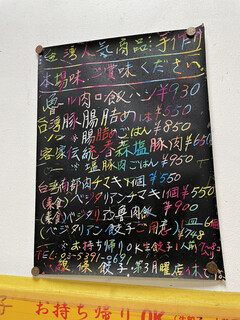 台湾人気商品：手作り
本場味、ご賞味ください
魯肉飯ハシ ¥930
台湾豚腸詰め ¥550
〃 腸詰めごはん ¥850
客家伝統香森塩豚肉 ¥650
〃 塩豚肉ごはん ¥950
台湾南部肉チマキ1個 ¥550
(素食)ベジタリアンチマキ1個 ¥550
(素食)ベジタリアン魯肉飯 ¥900
(ベジタリアン餃子ご用意)
※お持ち帰りOK生餃子1人前
TEL: 03-5391-069
餃子、第3月曜店休
お持ち帰りOK